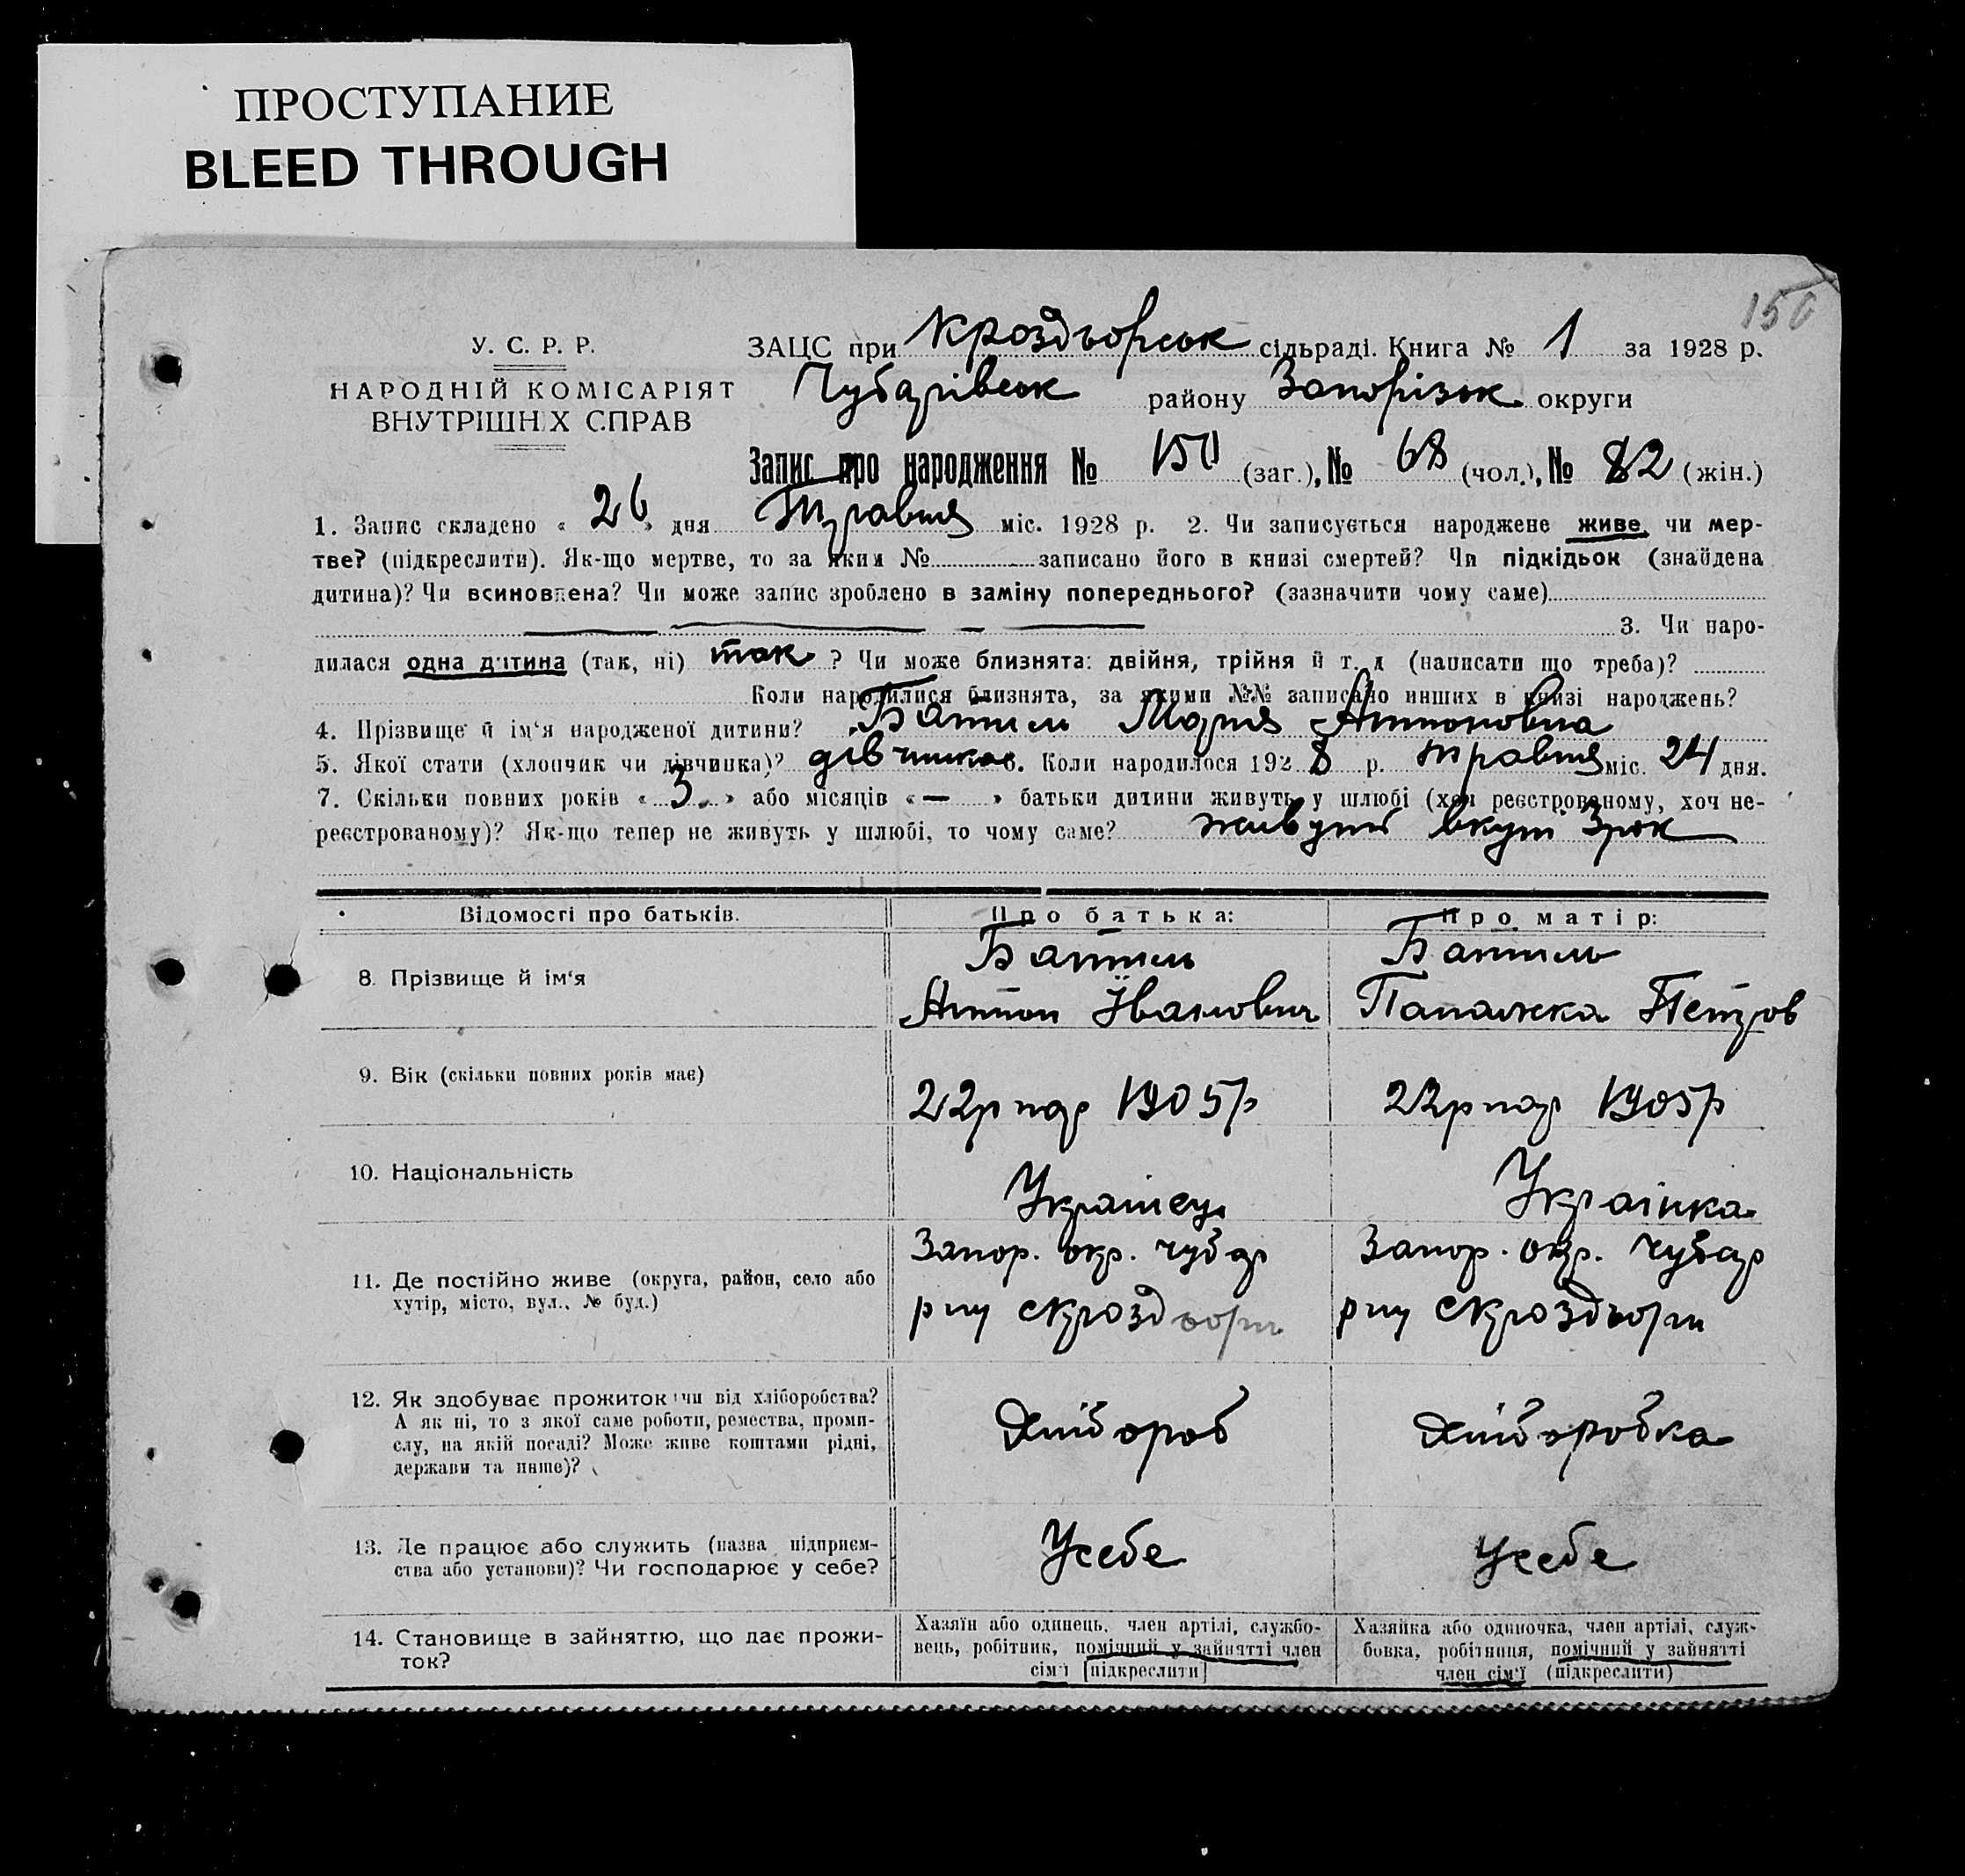 ПРОСТУПАНИЕ
BLEED THROUGH
150
У. С. Р. Р.
НАРОДНІЙ КОМІСАРІЯТ
ВНУТРІШНІХ СПРАВ
ЗАЦС при Кроздворськ сільраді. Книга № 1 за 1928 р.
Чубарівськ району Запорізьк округи
Запис про народження № 150 (заг.), № 68 (чол.), № 82 (жін.)
1. Запис складено « 26 » дня Травня міс. 1928 р. 2. Чи записується народжене живе, чи мер-
тве? (підкреслити). Як-що мертве, то за яким № записано його в книзі смертей? Чи підкідьок (знайдена
дитина)? Чи всиновлена? Чи може запис зроблено в заміну попереднього? (зазначити чому саме)
3. Чи наро-
дилася одна дитина (так, ні) так ? Чи може близнята: двійня, трійня й т. д (написати що треба)?
Коли народилися близнята, за якими №№ записано инших в книзі народжень?
4. Прізвище й ім‘я народженої дитини? Батиль Мария Антоновна
5. Якої стати (хлопчик чи дівчинка)? дівчинка 6. Коли народилося 1928 р. травня міс. 24 дня.
7. Скільки повних років « 3 » або місяців « — » батьки дитини живуть у шлюбі (хоч реєстрованому, хоч не-
реєстрованому)? Як-що тепер не живуть у шлюбі, то чому саме? живуть вкупі 3 рок
Відомості про батьків.
Про батька:
Про матір:
8. Прізвище й ім‘я
Батиль
Антон Іванович
Батиль
Петров
9. Вік (скільки повних років має)
22 р нар 1905 р
22 р нар 1905 р
10. Національність
Українец
Українка
11. Де постійно живе (округа, район, село або
хутір, місто, вул., № буд.)
Запор. окр. Чубар
рну с Кроздвори
Запор. окр. Чубар
рну с Кроздвори
12. Як здобуває прожиток чи від хліборобства?
А як ні, то з якої саме роботи, ремества, проми-
слу, на якій посаді? Може живе коштами рідні,
держави та инше)?
Хлібороб
Хліборобка
13. Де працює або служить (назва підприєм-
ства або установи)? Чи господарює у себе?
Усебе
Усебе
14. Становище в зайняттю, що дає прожи-
ток?
Хазяїн або одинець, член артілі, службо-
вець, робітник, помічний у зайнятті член
сім‘ї [підкреслити]
Хазяйка або одиночка, член артілі, служ-
бовка, робітниця, помічний у зайнятті
член сім‘ї (підкреслити)